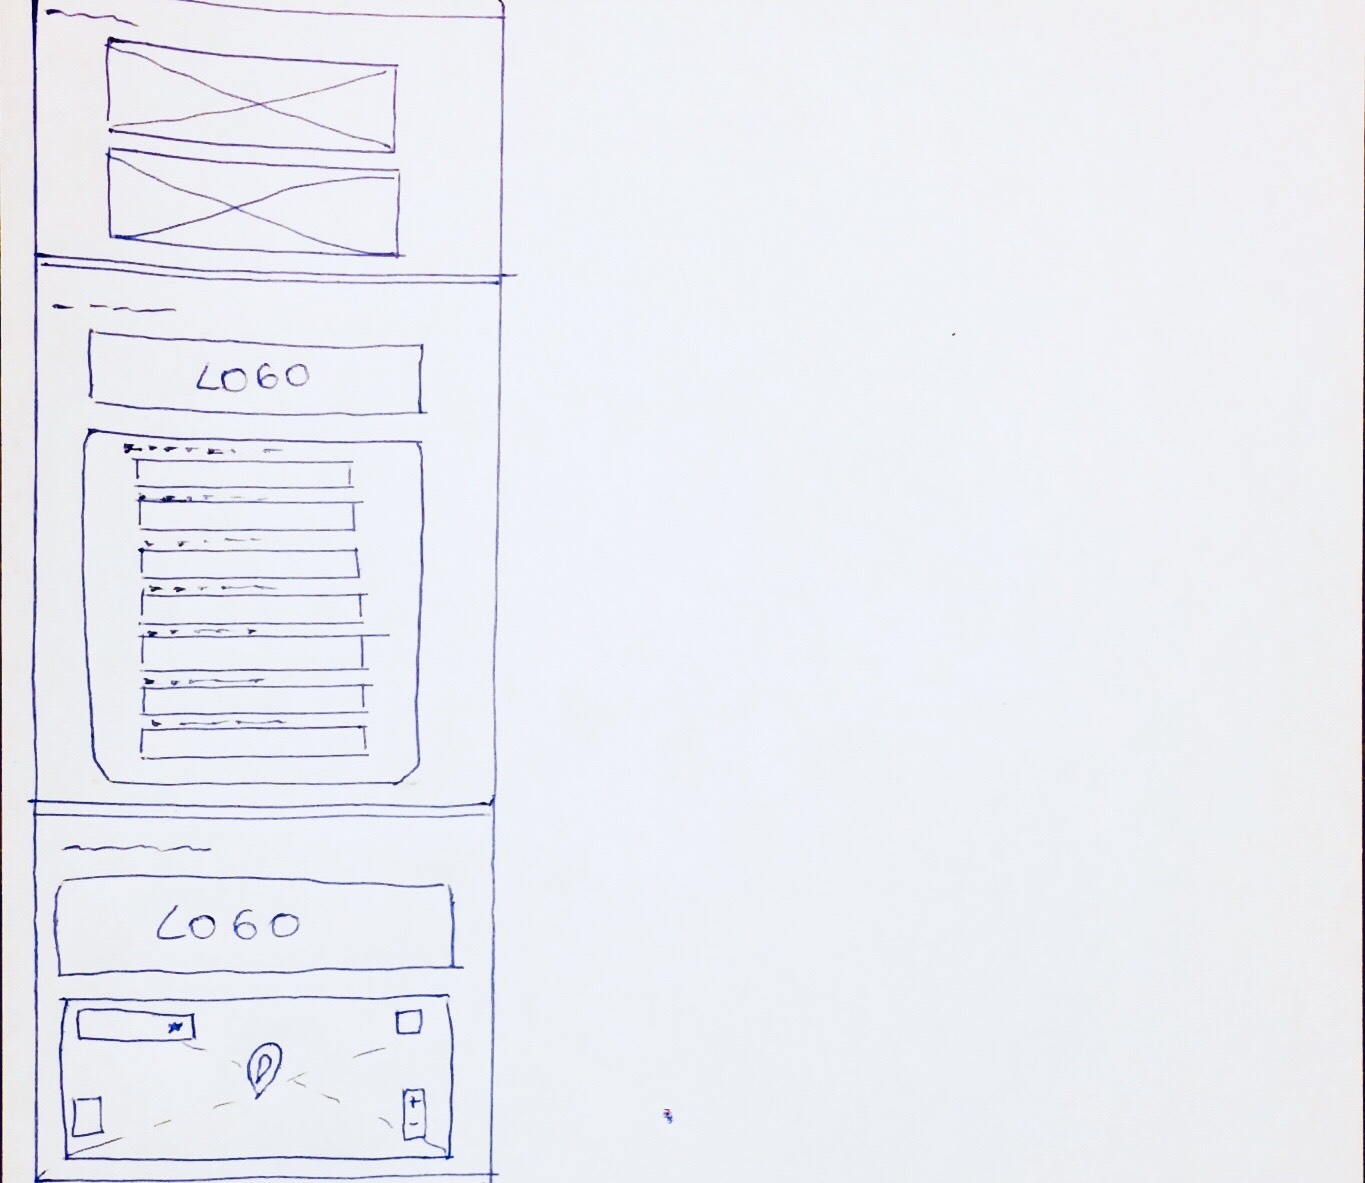 LOGO
LOGO
+
-